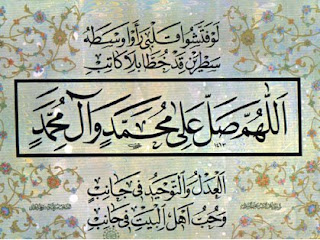 لَوْ فَتَّشُوا قَلْبِي رَأَوْا وَسْطَهُ
سَطْرَيْنِ قَدْ خُطَّا بِلَا كَاتِبِ
اَللّٰهُمَّ صَلِّ عَلٰى مُحَمَّدٍ وَآلِ مُحَمَّدٍ
١٤١٣
اَلْعَدْلُ وَالتَّوْحِيدُ فِي جَانِبٍ
وَحُبُّ أَهْلِ الْبَيْتِ فِي جَانِبِ